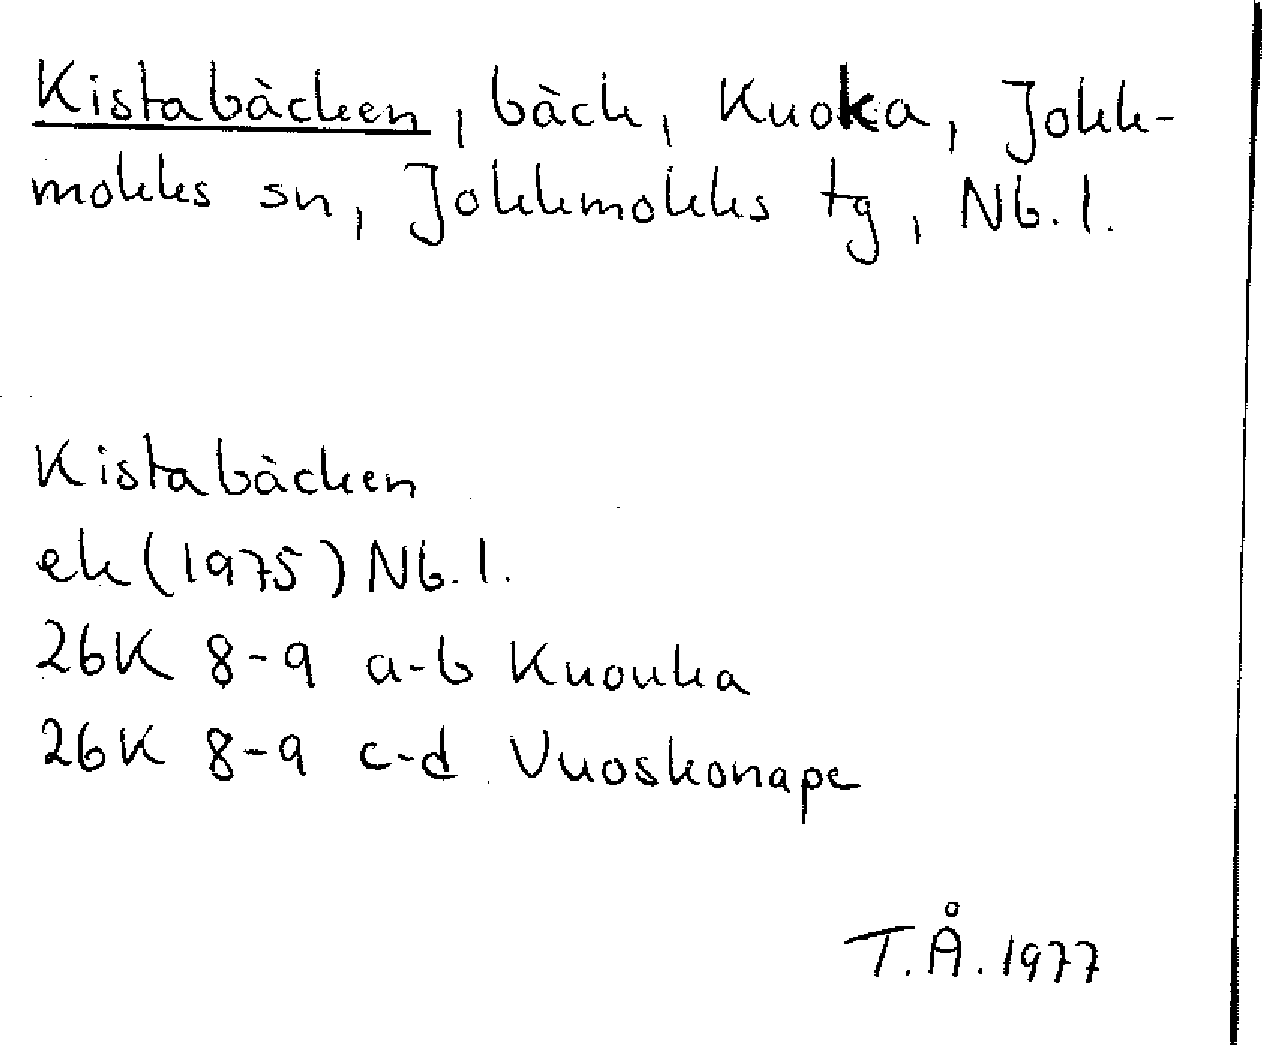 Kistabäcken, bäck, Kuoka, Jokk-
mokks sn, Jokkmokks tg, Nb. l.
Kistabäcken
ek (1975) Nb. l.
26K 8-9 a-b Kuouka
26K 8-9 c-d Vuoskonape
T.Å. 1977